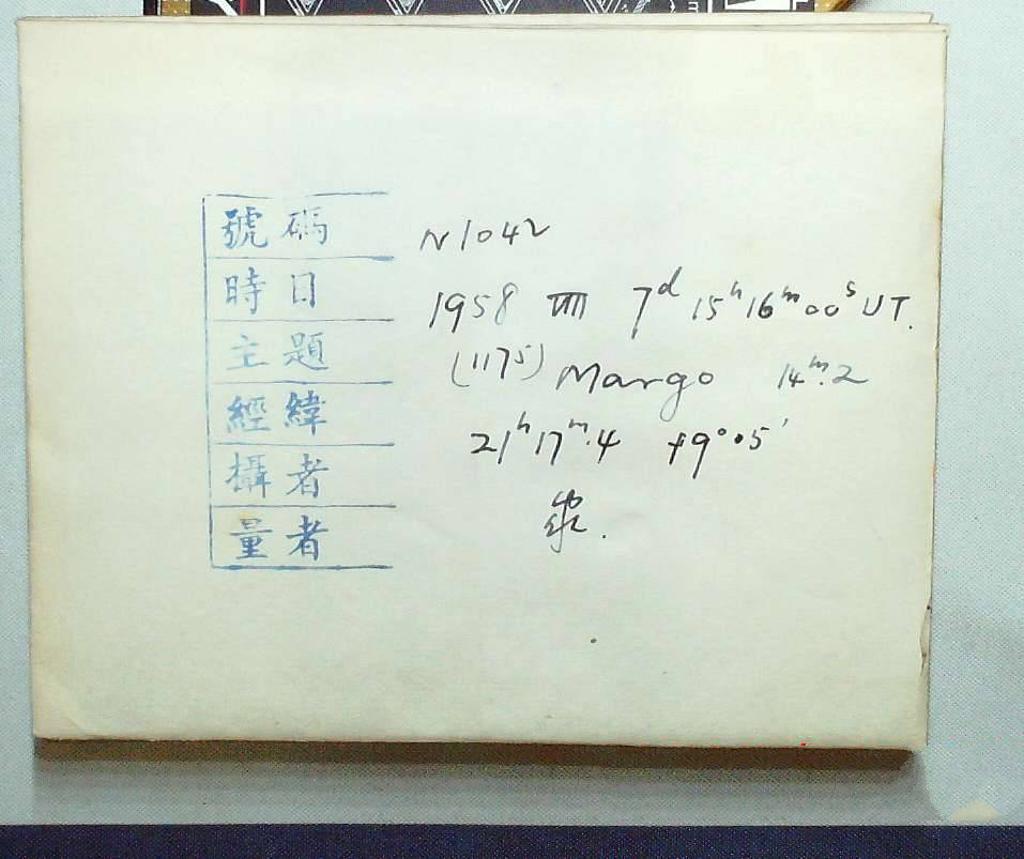 號碼 N1042
時日 1958 VIII 7d 15h16m00s UT.
主題 (1175) Margo 14m.2
經緯 21h17m.4 +9°05'
攝者
量者